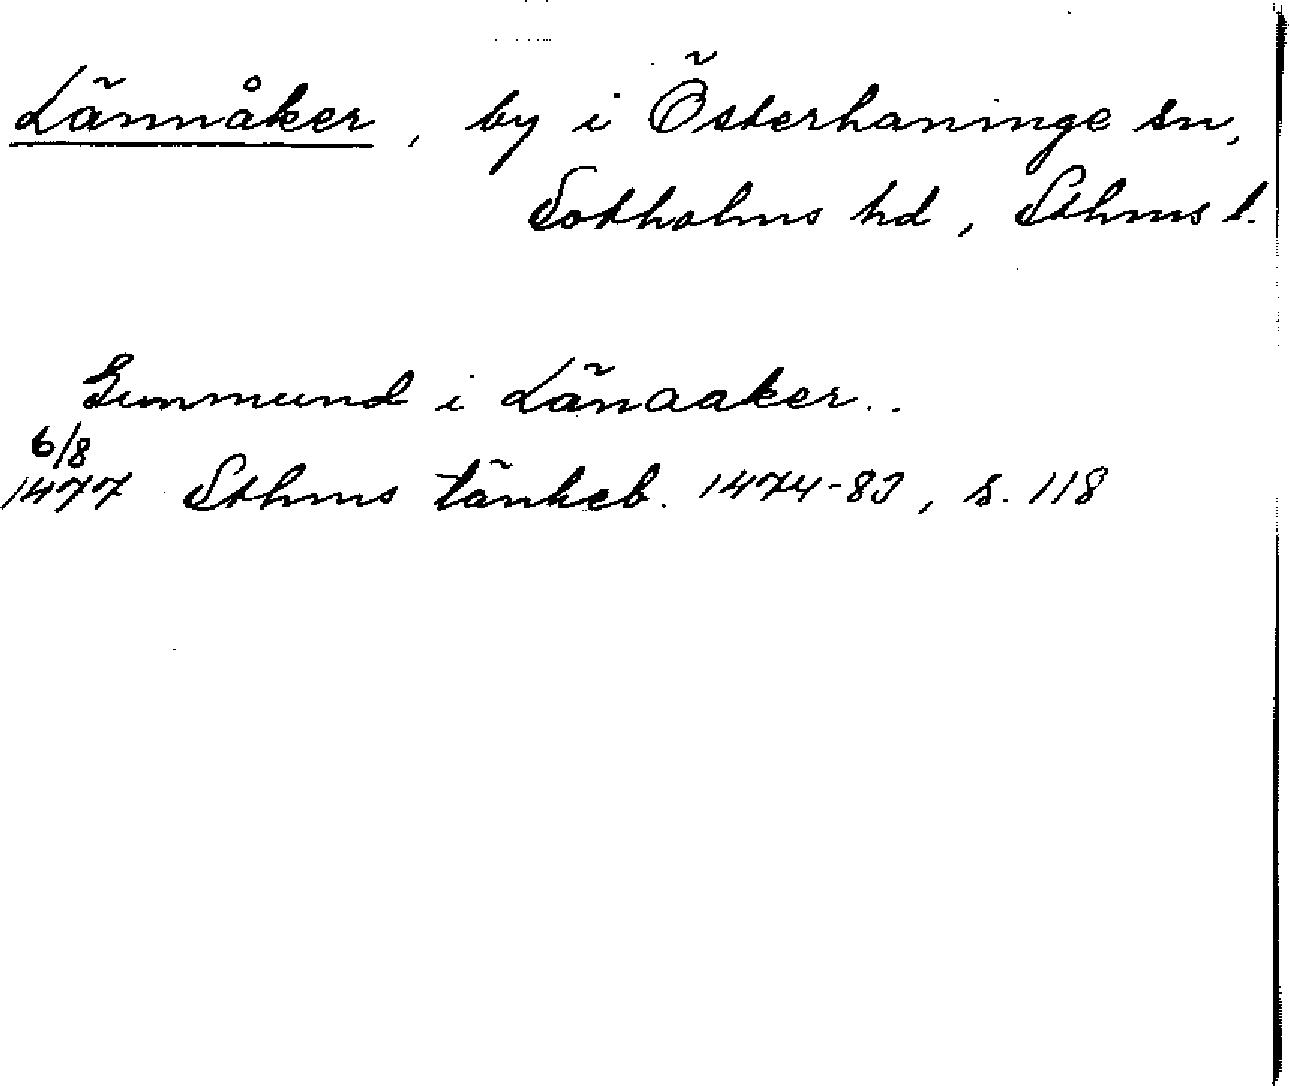 Lännåker, by i Österhaninge sn,
Sotholms hd, Sthms l.
Gunmund i Länaaker..
6/8
1477 Sthms tänkeb. 1474-83, s. 118